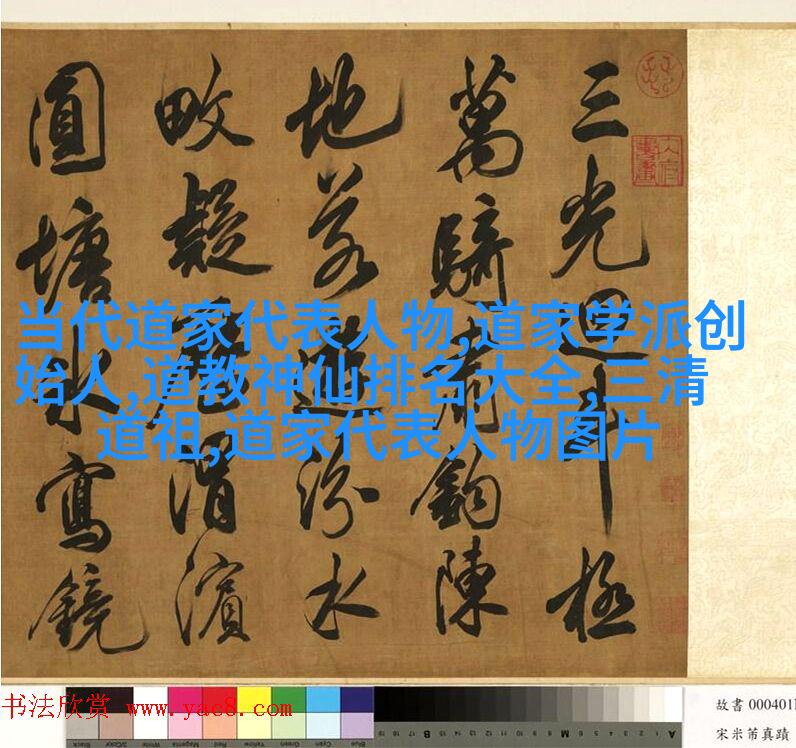 三光迴斗極
萬騎肅鈎陳
地若遊汾水
畋疑渭濱
圓塘冰寫鏡
当代道家代表人物,道家学派创
始人,道教神仙排名大全,三清
道祖,道家代表人物图片
书法欣赏 www.yac8.com
故書 000401
宋米芾真蹟